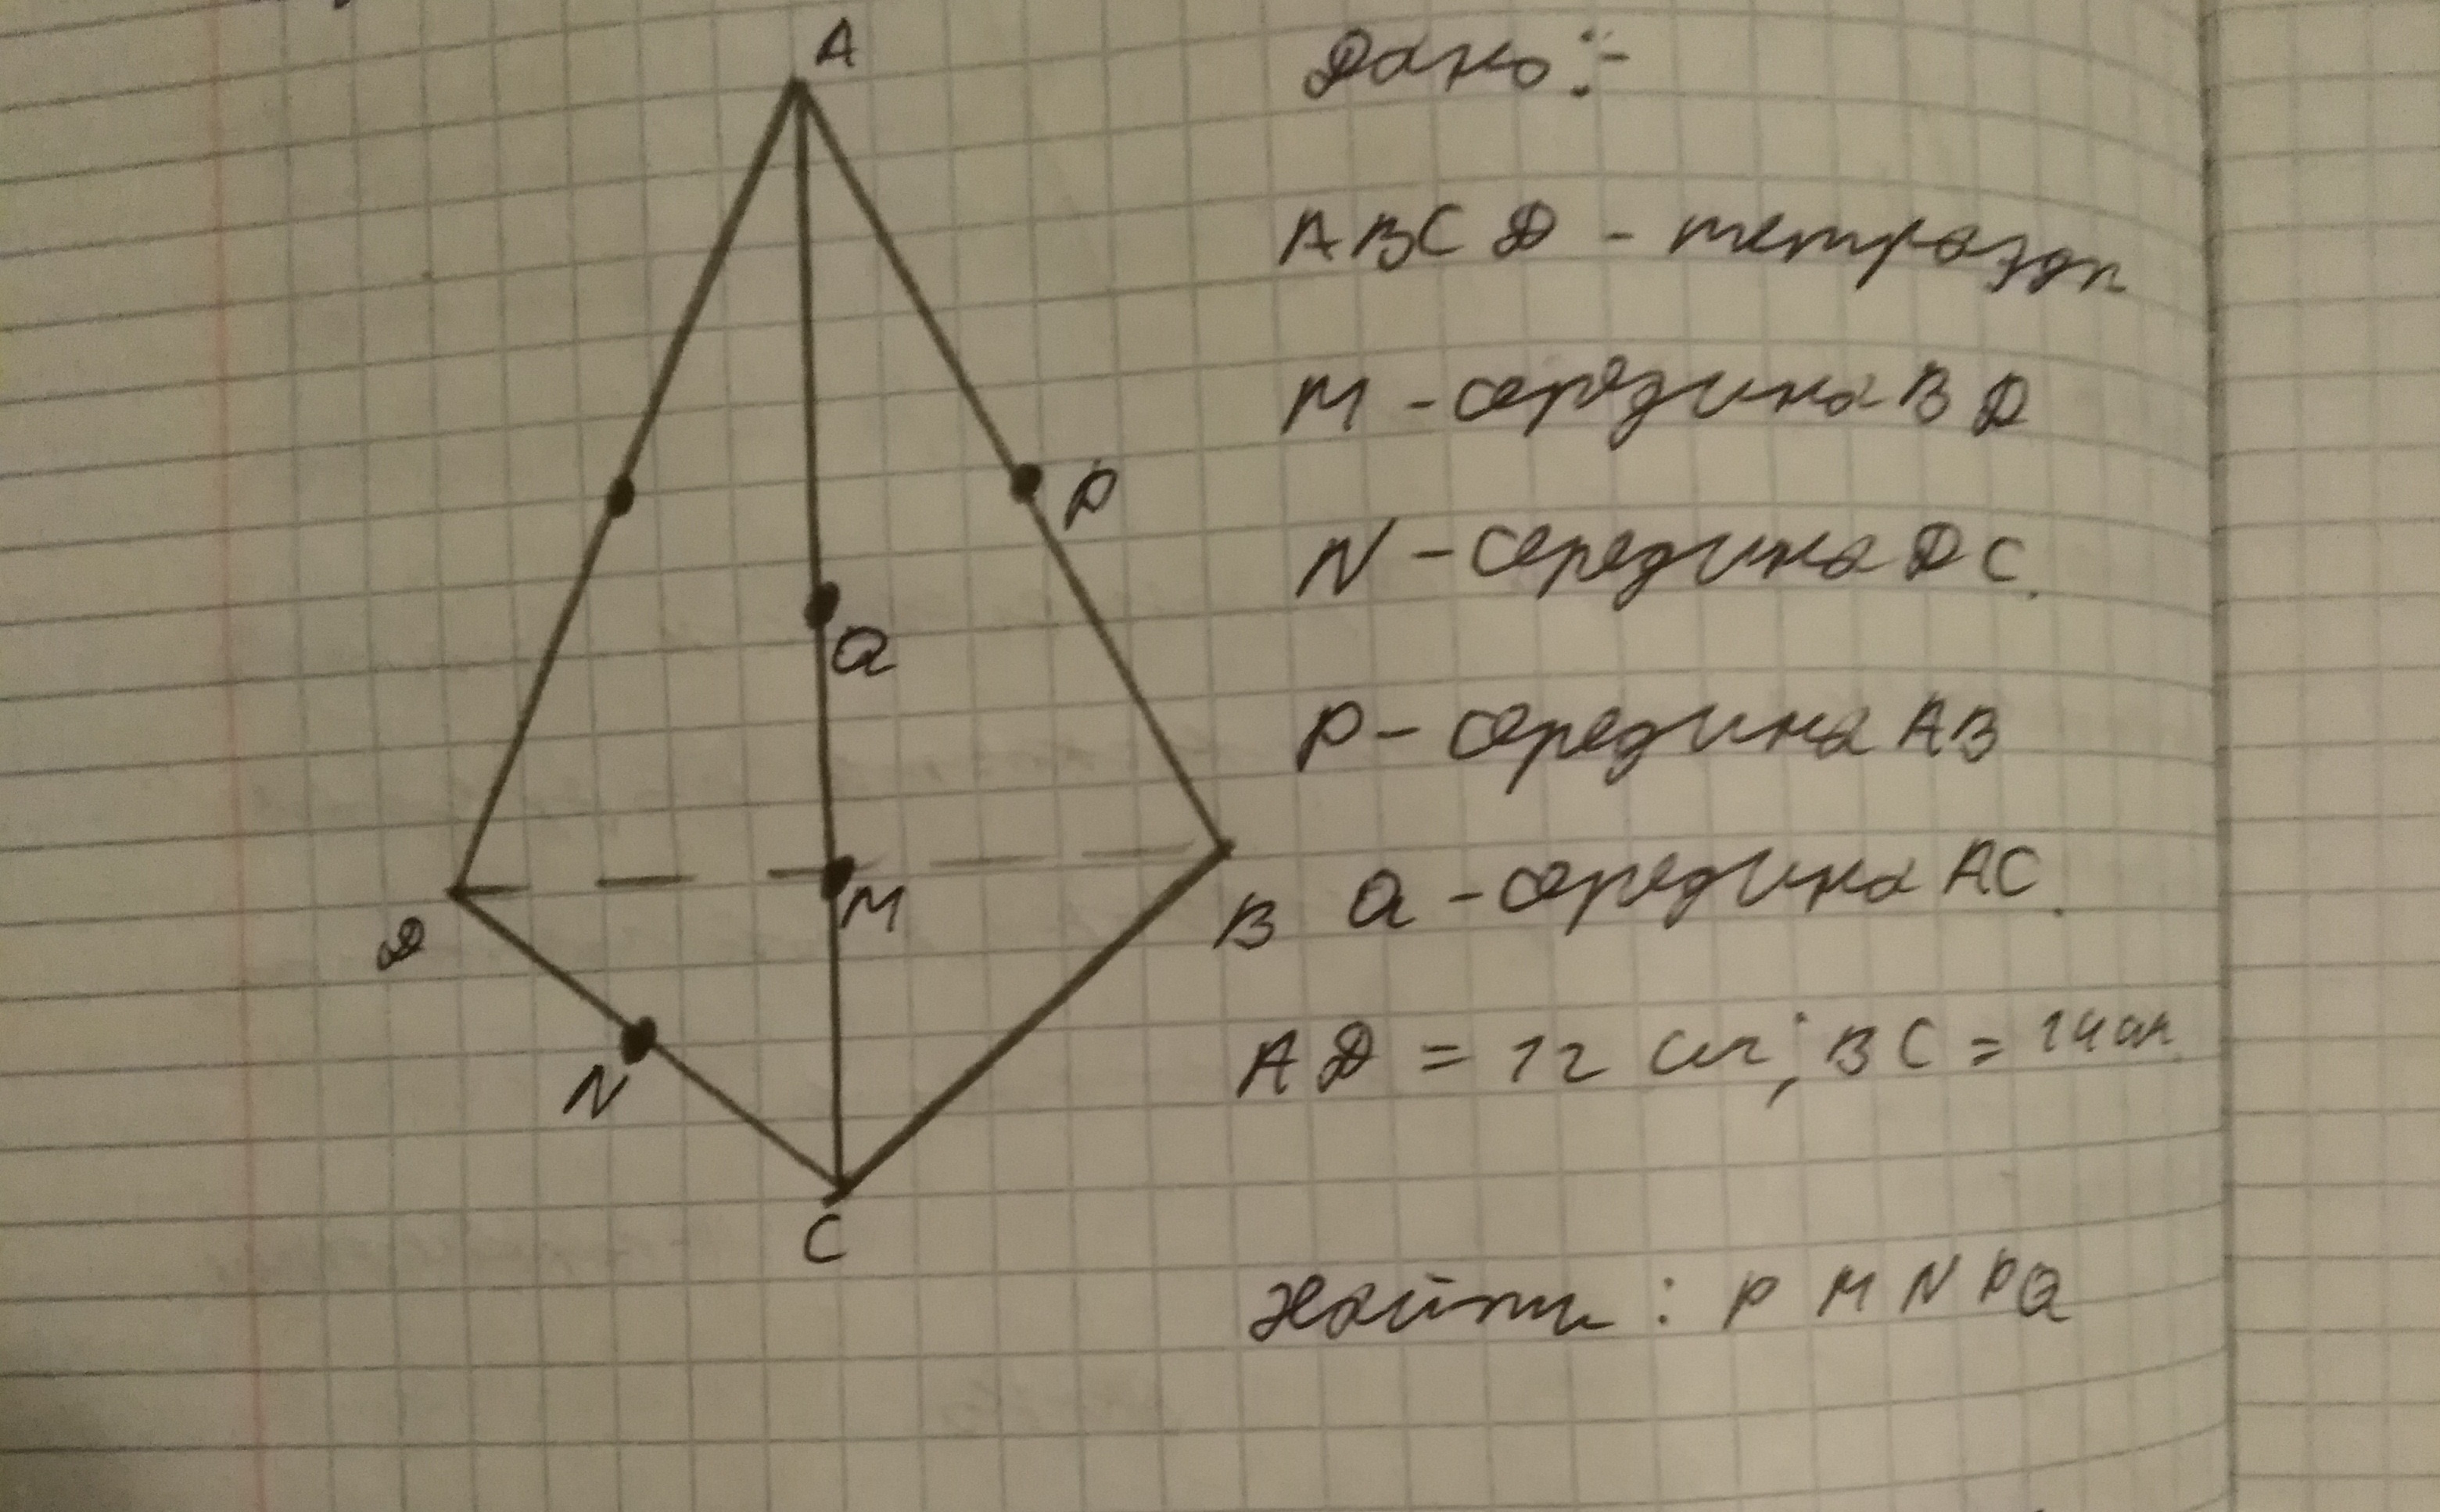 A
P
Q
M
D
B
N
C
Дано:-
ABCD - тетраэдр
M - середина BD
N - середина DC.
P - середина AB
Q - середина AC.
AD = 12 см; BC = 14 см
Найти: P MNPQ